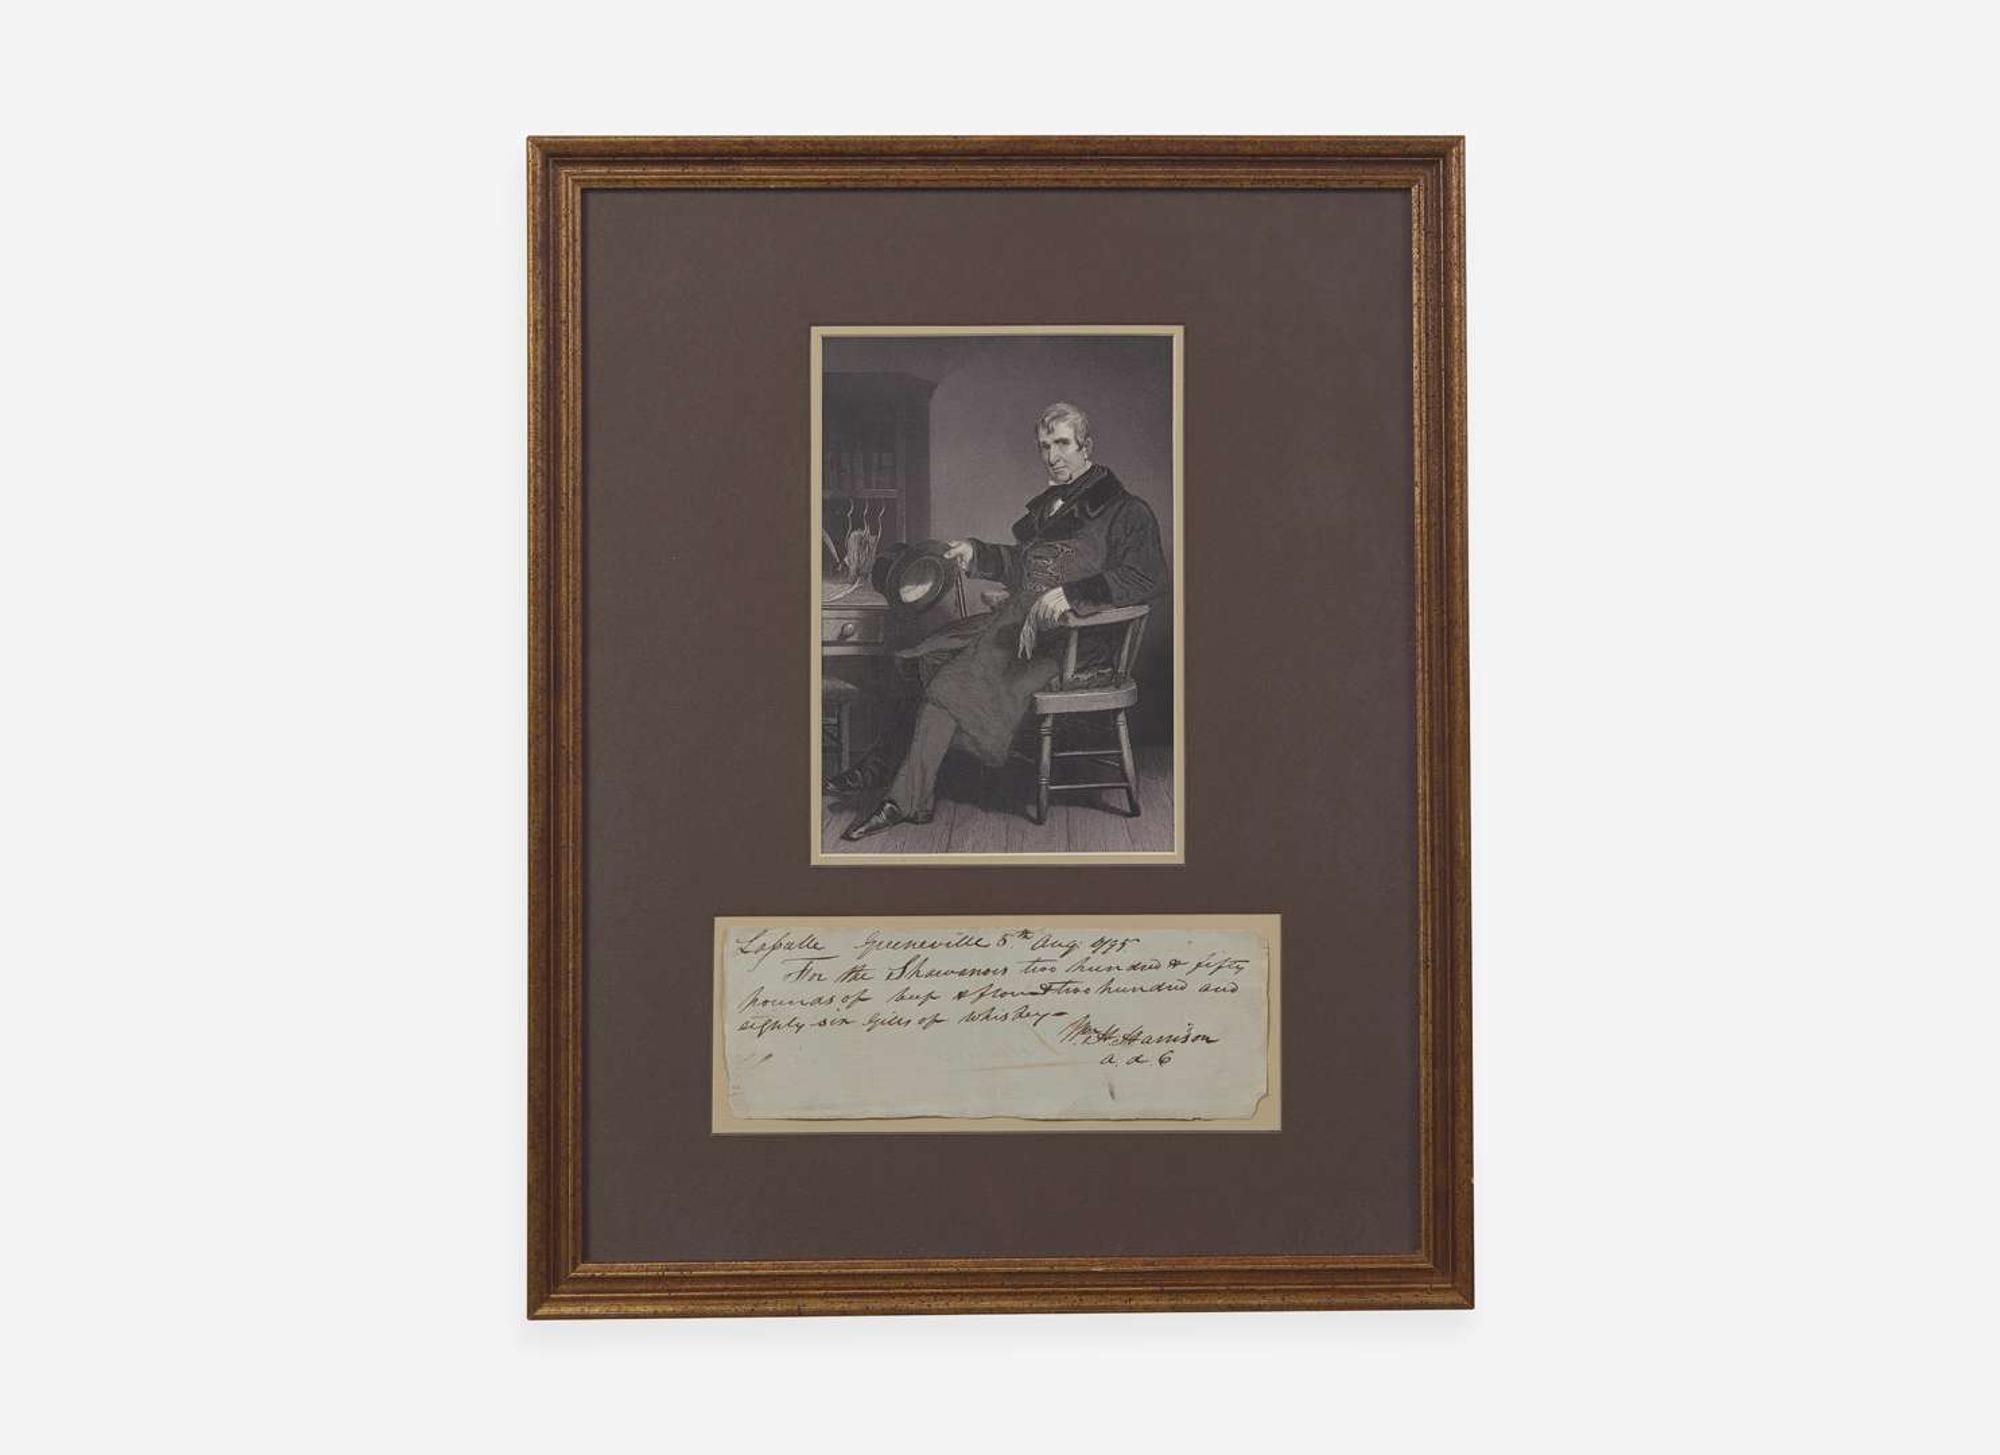 Lasalle Greeneville 5th Aug. 1795
For the Shawanoes two hundred & fifty
pounds of beef & flour & two hundred and
eighty-six Gills of Whiskey—
Wm. H. Harrison
a. d. C